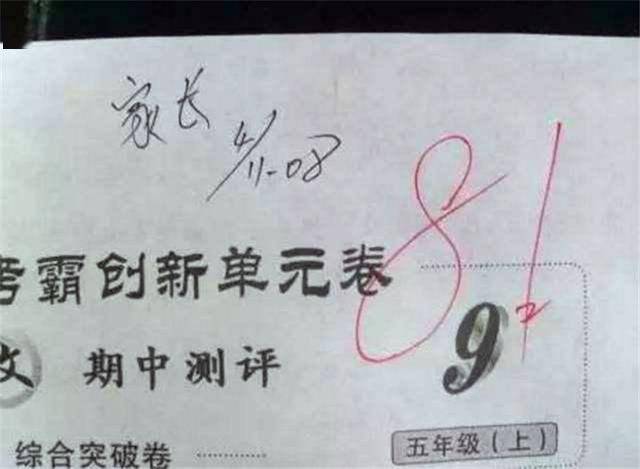 家长
4/11-08
81
考霸创新单元卷
9
文 期中测评
五年级（上）
综合突破卷 …………